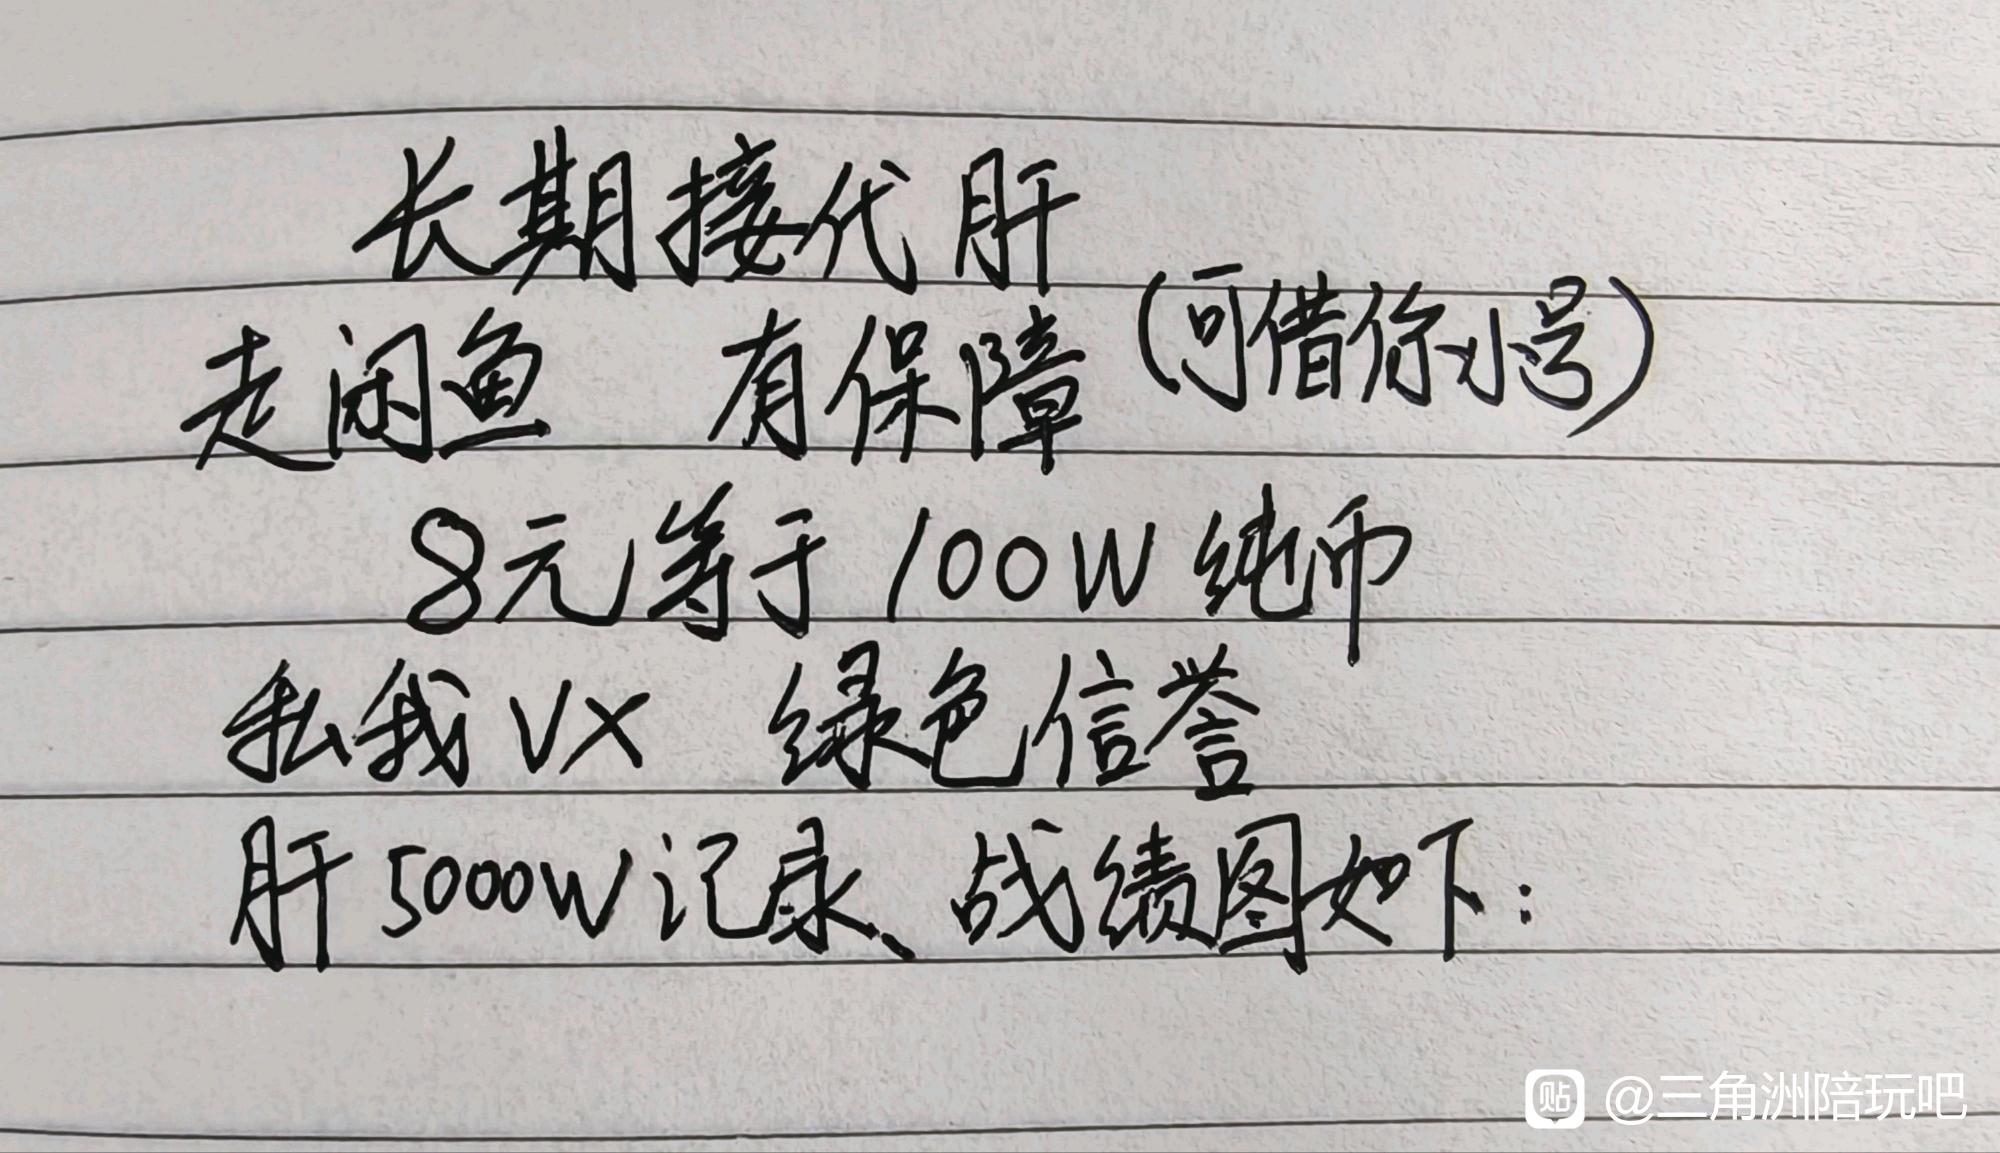 长期接代肝
走闲鱼 有保障(可借你小号)
8元等于100W纯币
私我VX 绿色信誉
肝5000W记录、战绩图如下:
贴 @三角洲陪玩吧